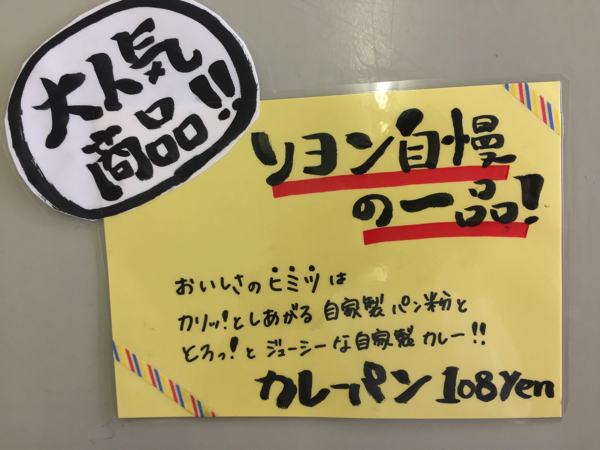 大人気
商品!!
リヨン自慢
の一品!
おいしさのヒミツは
カリッ!としあがる自家製パン粉と
とろっ!とジューシーな自家製カレー!!
カレーパン 108Yen